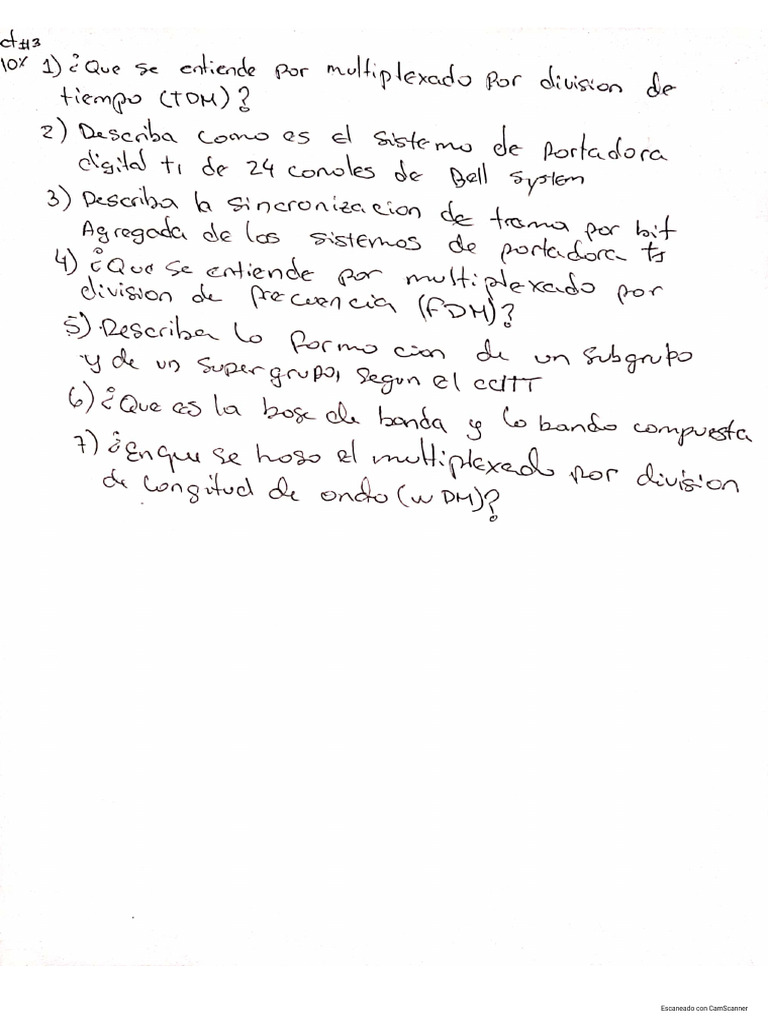 ct#3
10% 1) ¿Que se entiende por multiplexado por division de
tiempo (TDM)?
2) Describa como es el sistema de portadora
digital t1 de 24 canales de Bell System
3) Describa la sincronizacion de trama por bit
Agregada de los sistemas de portadora ts
4) ¿Que se entiende por multiplexado por
division de frecuencia (FDM)?
5) Describa la formacion de un subgrupo
y de un supergrupo, segun el CCITT
6) ¿Que es la base de banda y la banda compuesta
7) ¿En que se basa el multiplexado por division
de longitud de onda (WDM)?
Escaneado con CamScanner